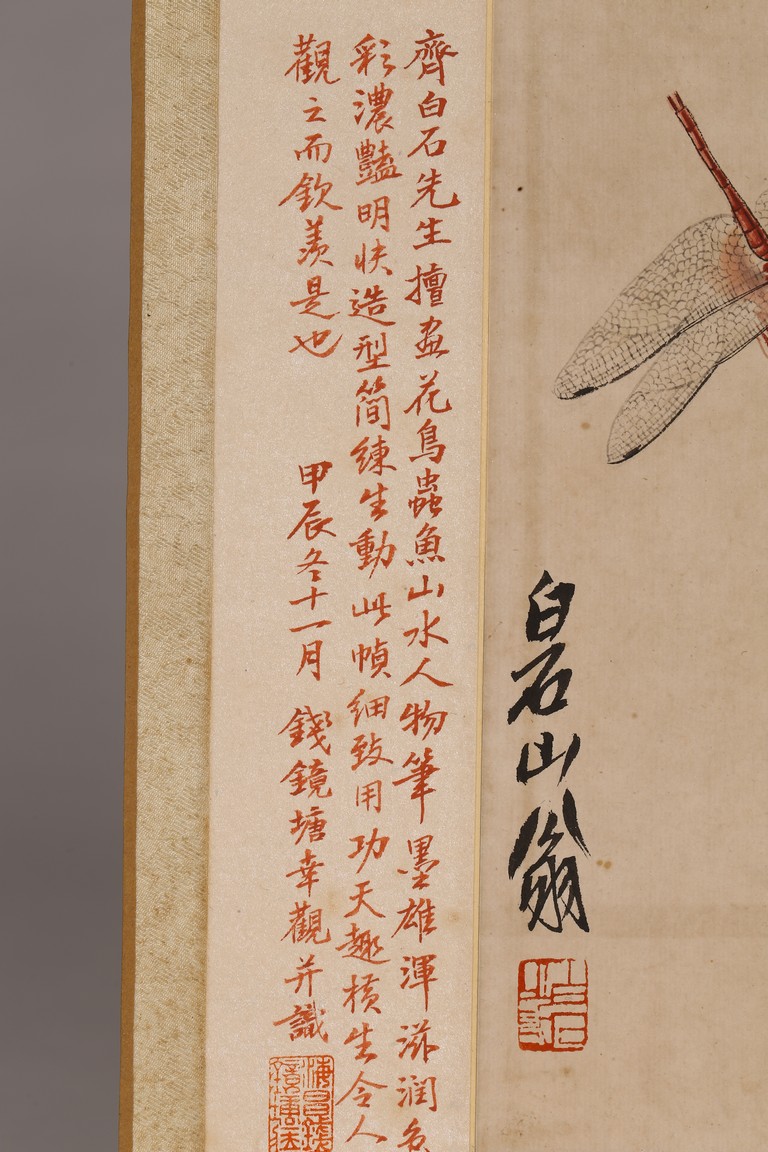 白石山翁
齊白石先生擅畫花鳥蟲魚山水人物筆墨雄渾滋润色
彩濃豔明快造型简練生動此幀細致用功天趣橫生令人
觀之而欽羨是也 甲辰冬十一月 錢鏡塘幸觀并識